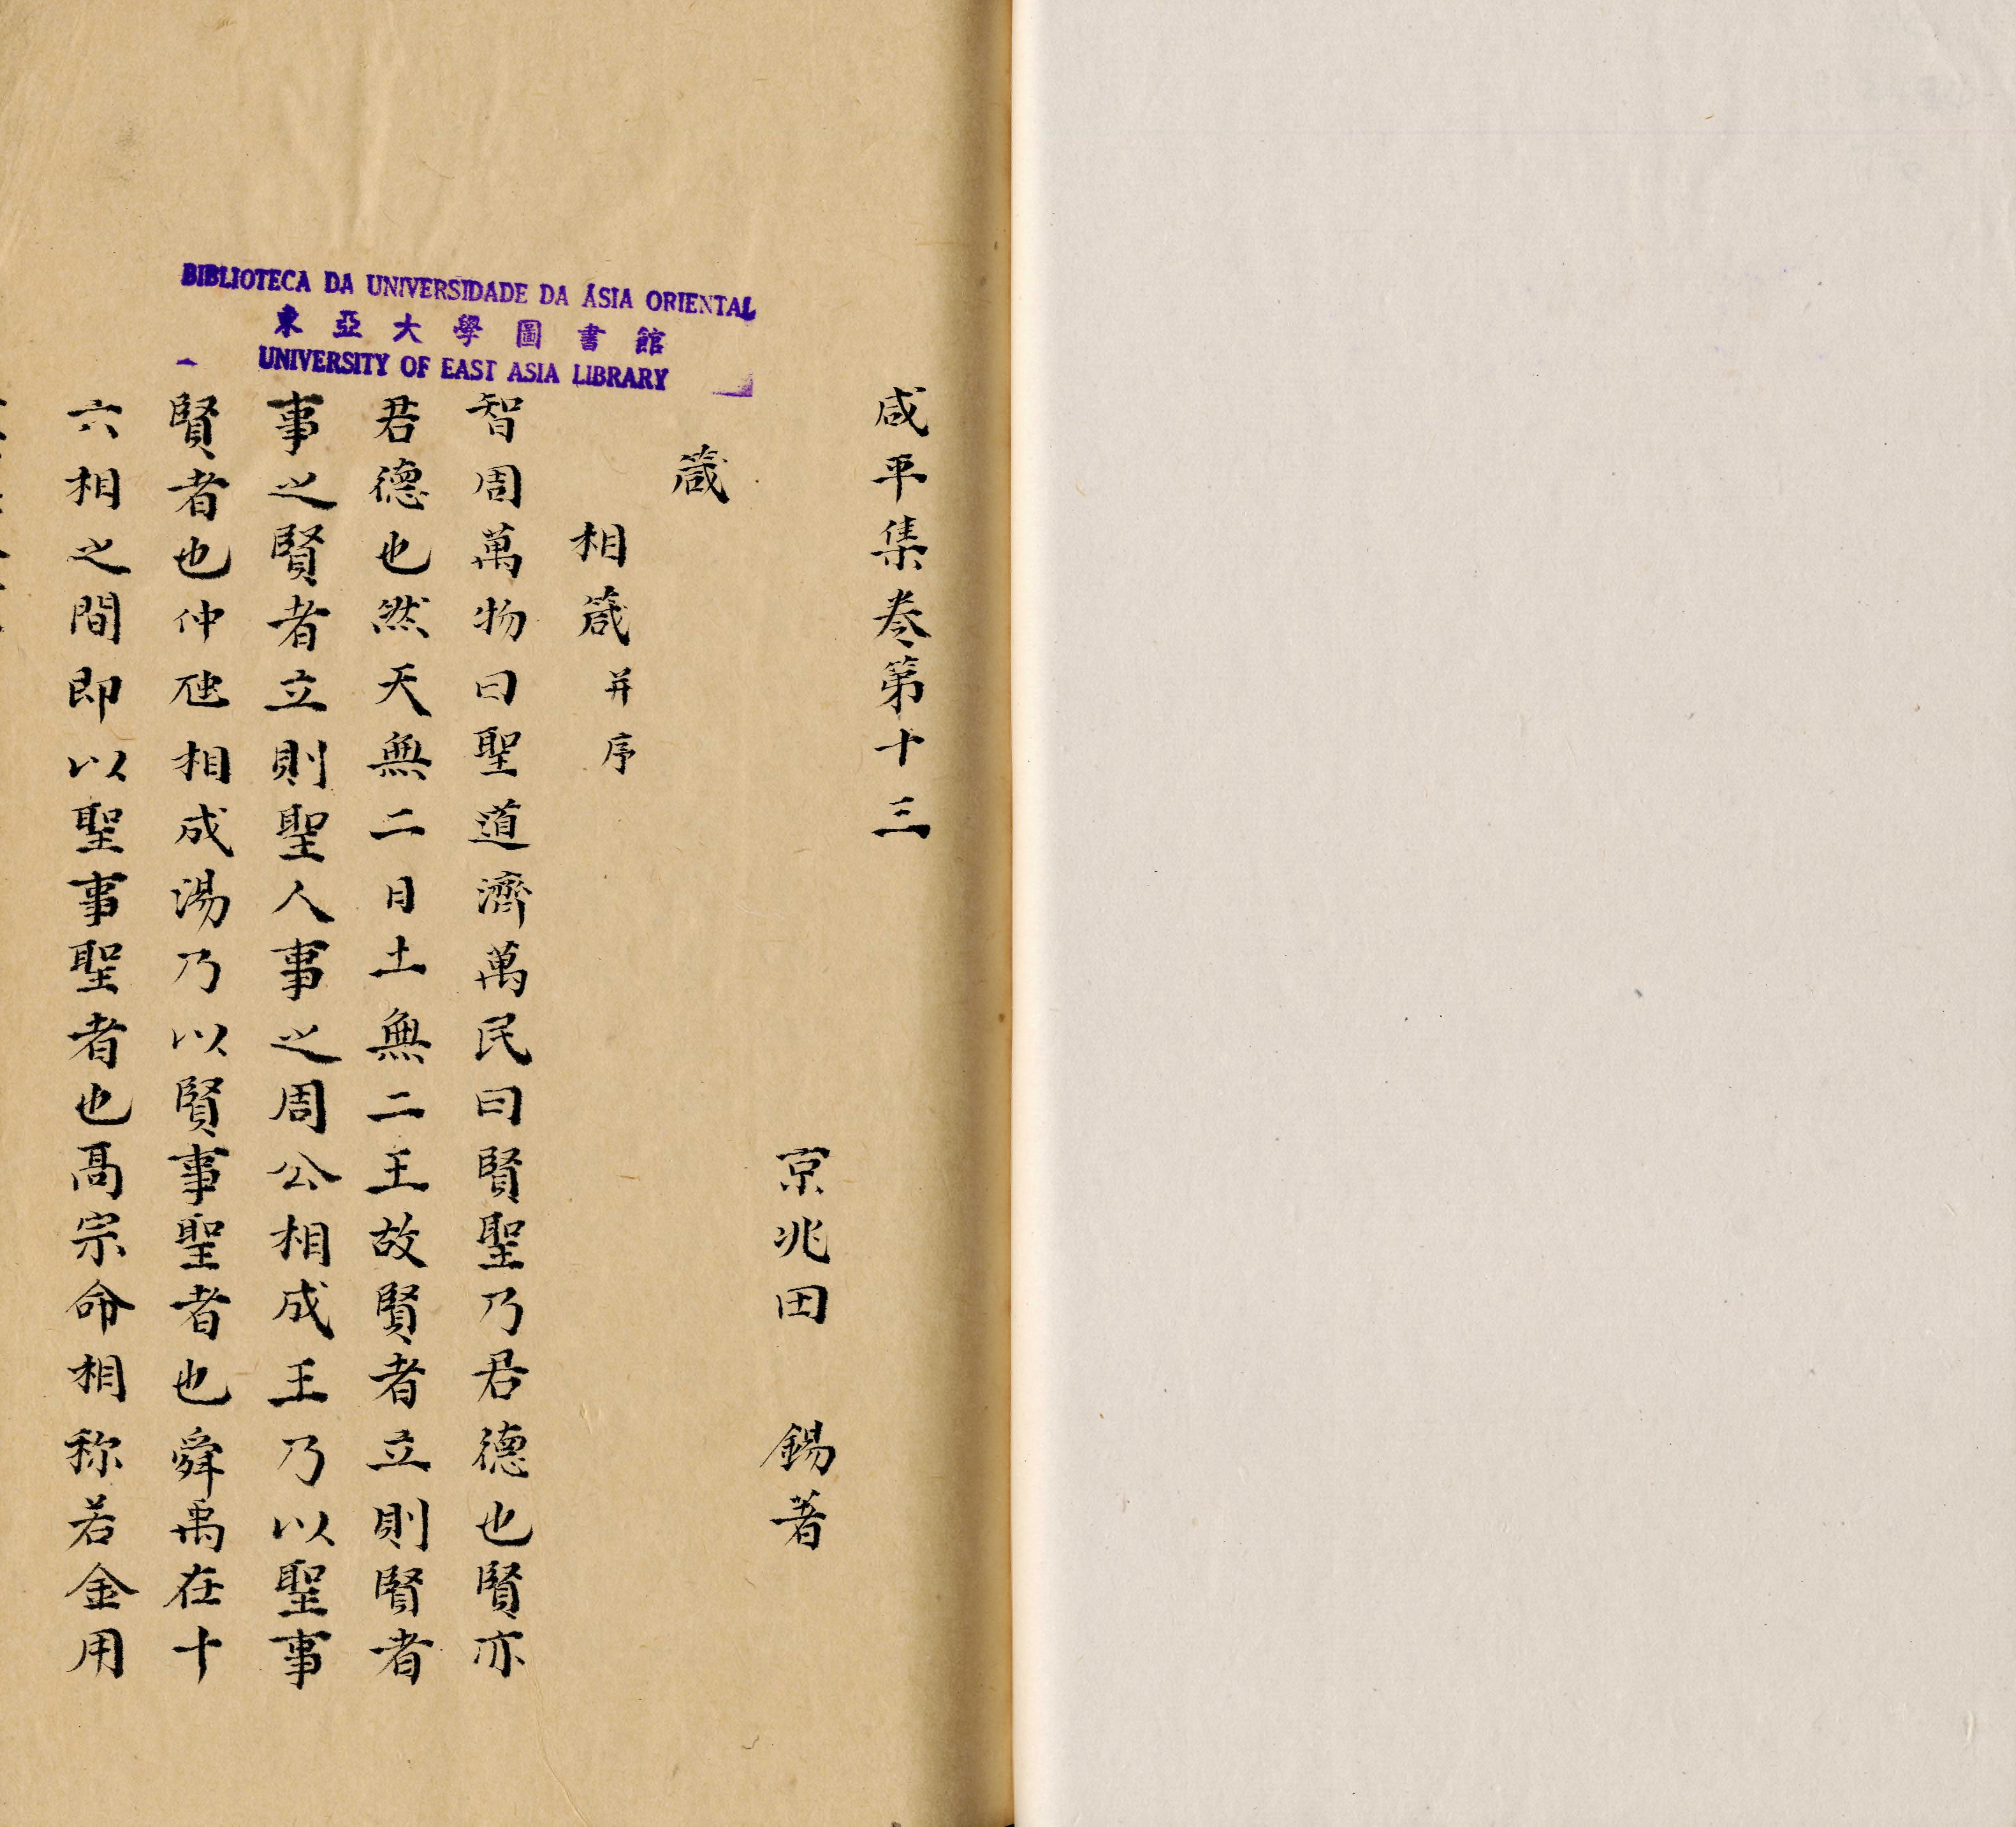 咸平集卷第十三
京兆田 錫著
箴
相箴并序
智周萬物曰聖道濟萬民曰賢聖乃君德也賢亦
君德也然天無二日土無二王故賢者立則賢者
事之賢者立則聖人事之周公相成王乃以聖事
賢者也仲虺相成湯乃以賢事聖者也舜禹在十
六相之間即以聖事聖者也髙宗命相称若金用
BIBLIOTECA DA UNIVERSIDADE DA ÁSIA ORIENTAL
東亞大學圖書館
UNIVERSITY OF EAST ASIA LIBRARY